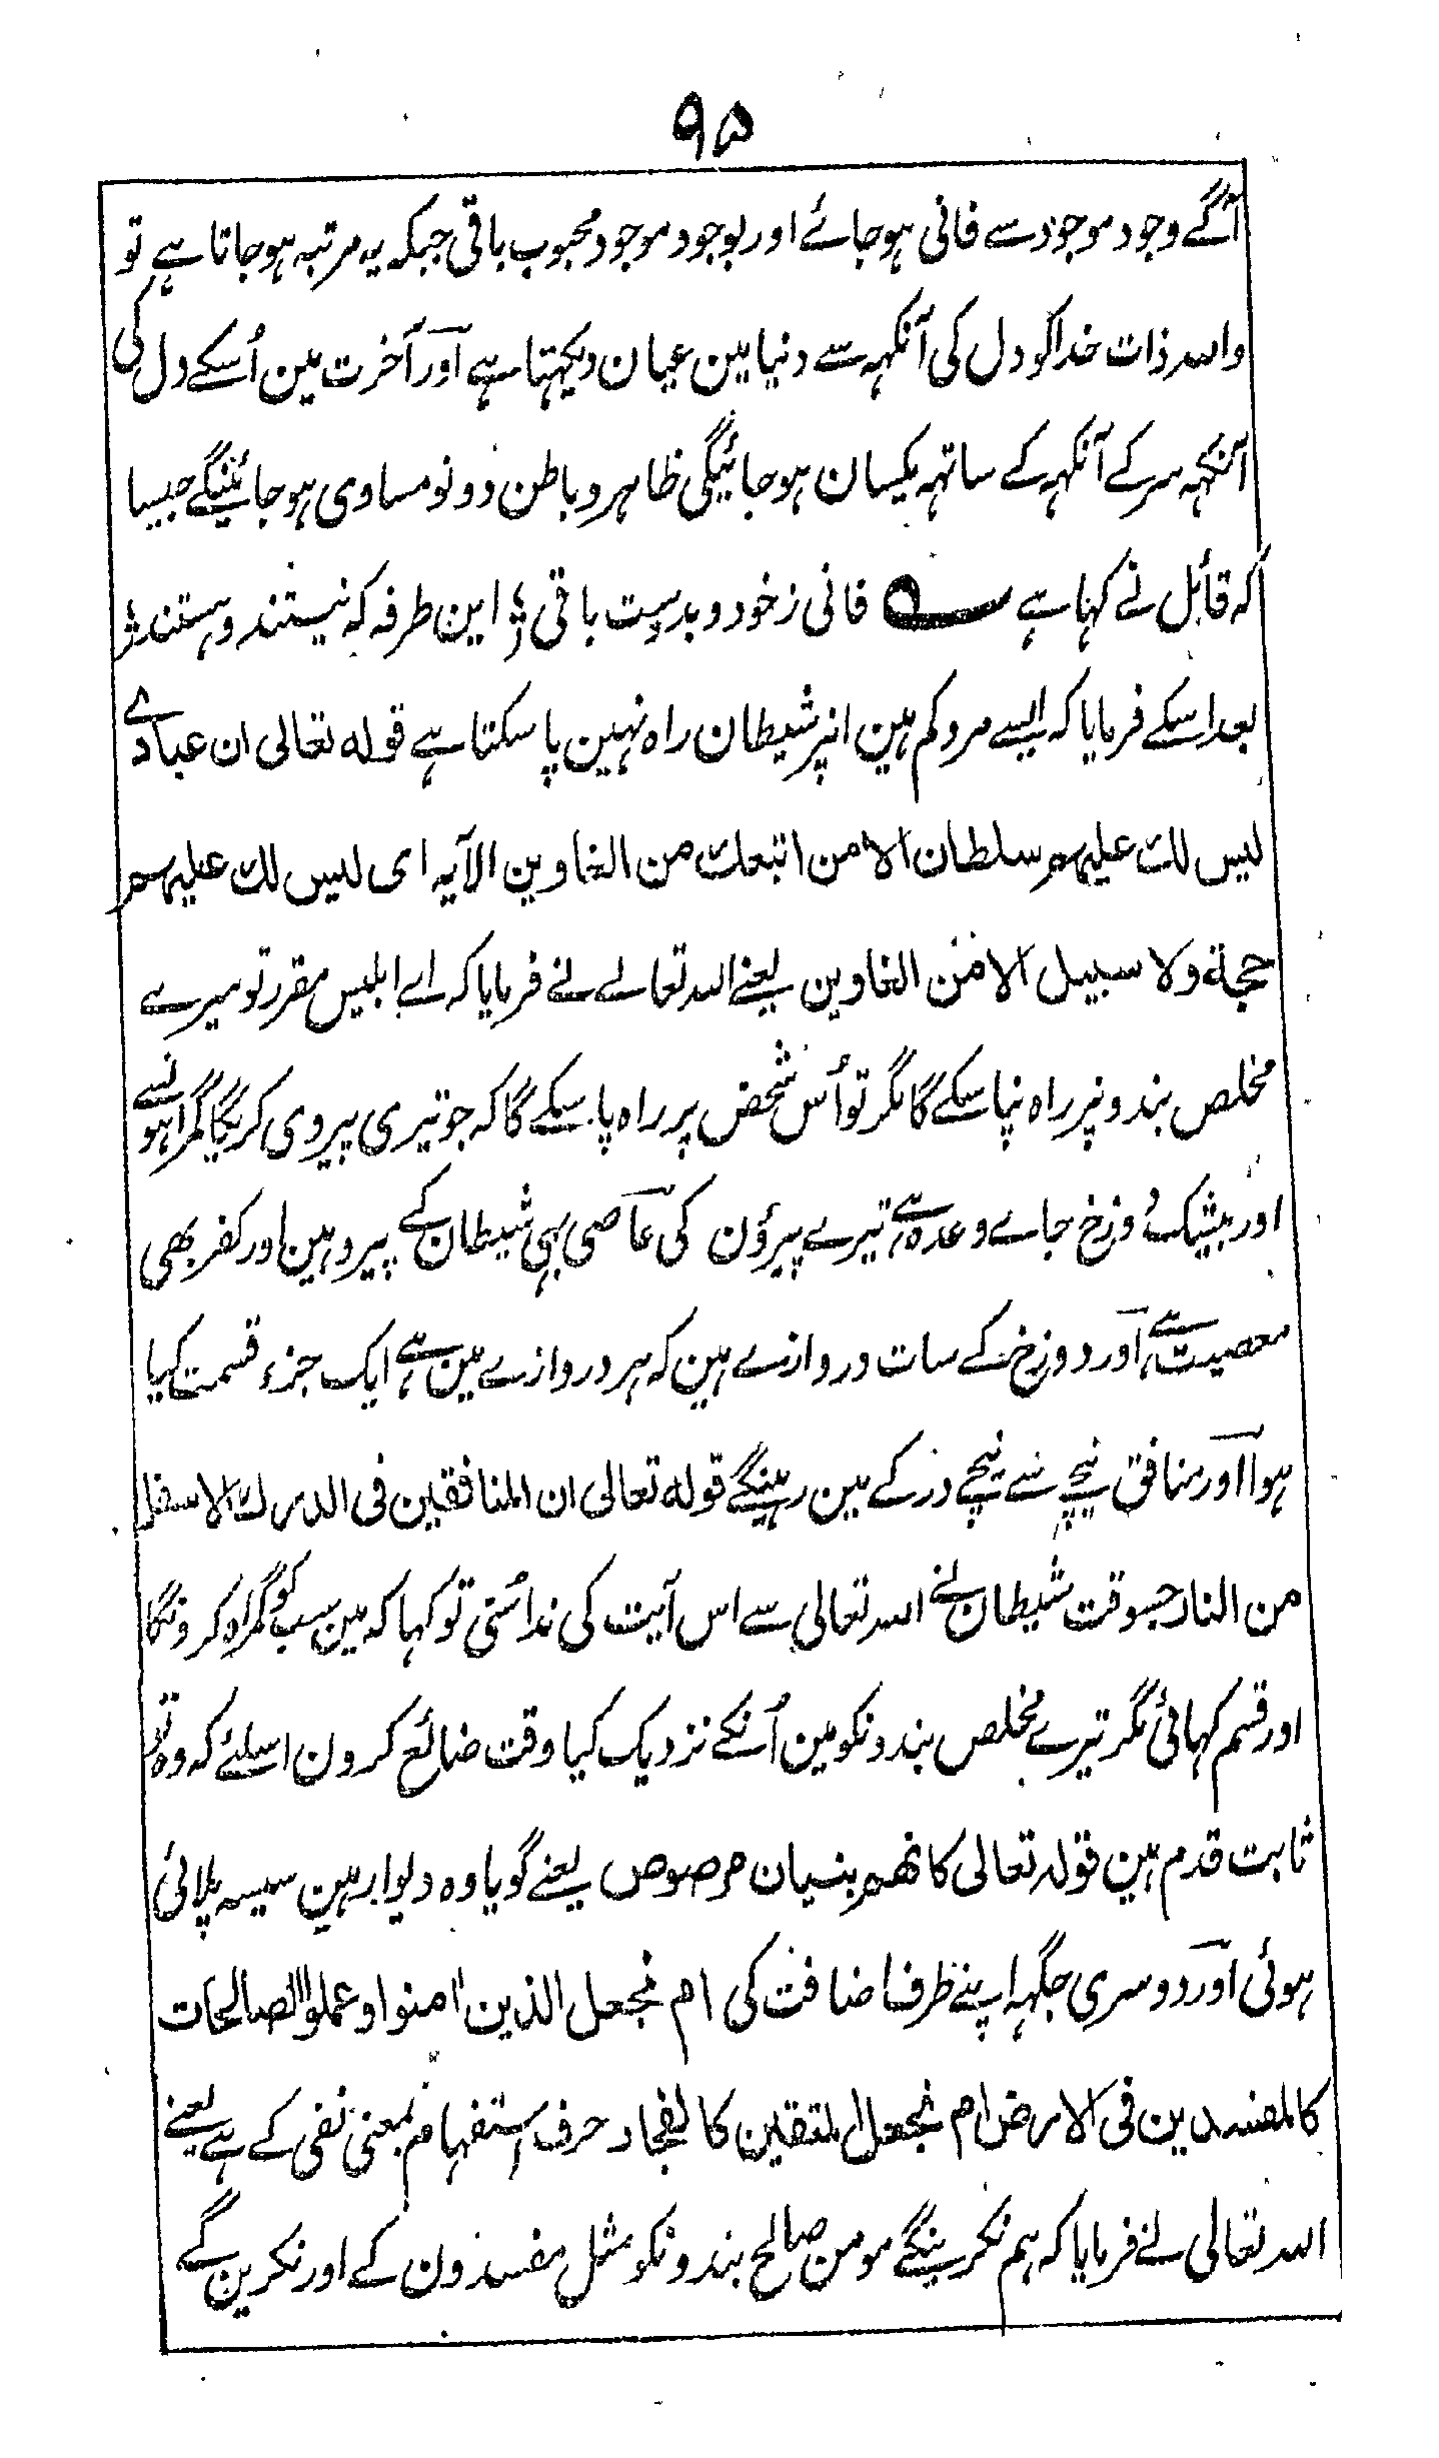 ٩۵
آگے وجود موجود سے فانی ہوجائے اور بوجود موجود محبوب باقی جبکہ یہ مرتبہ ہوجاتا ہے تو
واللہ ذات خدا کو دل کی آنکہہ سے دنیا مین عیان دیکہتا ہے اور آخرت مین اُسکے دل کی
آنکہہ سر کے آنکہہ کے ساتہہ یکسان ہوجائیگی ظاہر و باطن دونو مساوی ہوجائینگے جیسا
کہ قائل نے کہا ہے ؎ فانی زخود و بدوست باقی ؛ این طرفہ کہ نیستند و ہستند ؛
بعد اسکے فرمایا کہ ایسے مرد کم ہین انپر شیطان راہ نہین پا سکتا ہے قولہ تعالی ان عبادے
لیس لک علیہم سلطان الا من اتبعک من الغاوین الآیہ ای لیس لک علیہم
حجة ولا سبیل الا من الغاوین یعنے اللہ تعالے نے فرمایا کہ اے ابلیس مقرر تو میرے
مخلص بندونپر راہ نپا سکے گا مگر تو اُس شخص پر راہ پا سکے گا کہ جو تیری پیروی کریگا گمراہونسے
اور بیشک دوزخ جاے وعدہ ہے تیرے پیرؤن کی عاصی بہی شیطان کے پیرو ہین اور کفر بھی
معصیت ہے اور دوزخ کے سات دروازے ہین کہ ہر دروازے مین ہے ایک جزء قسمت کیا
ہوا اور منافق نیچے سے نیچے درکے مین رہینگے قولہ تعالی ان المنافقین فی الدرک الاسفل
من النار جسوقت شیطان نے اللہ تعالی سے اس آیت کی ندا سُنی تو کہا کہ مین سب کو گمراہ کرونگا
اور قسم کہائی مگر تیرے مخلص بندونکو مین اُنکے نزدیک کیا وقت ضائع کرون اسلئے کہ وہ تو
ثابت قدم ہین قولہ تعالی کانهم بنیان مرصوص یعنے گویا وہ دیوار ہین سیسہ پلائی
ہوئی اور دوسری جگہہ اپنے طرف اضافت کی ام نجعل الذین امنوا و عملوا الصالحات
کالمفسدین فی الارض ام نجعل المتقین کالفجار حرف استفہام بمعنی نفی کے ہے یعنے
اللہ تعالی نے فرمایا کہ ہم نکرینگے مومن صالح بندونکو مثل مفسدون کے اور نکرین گے